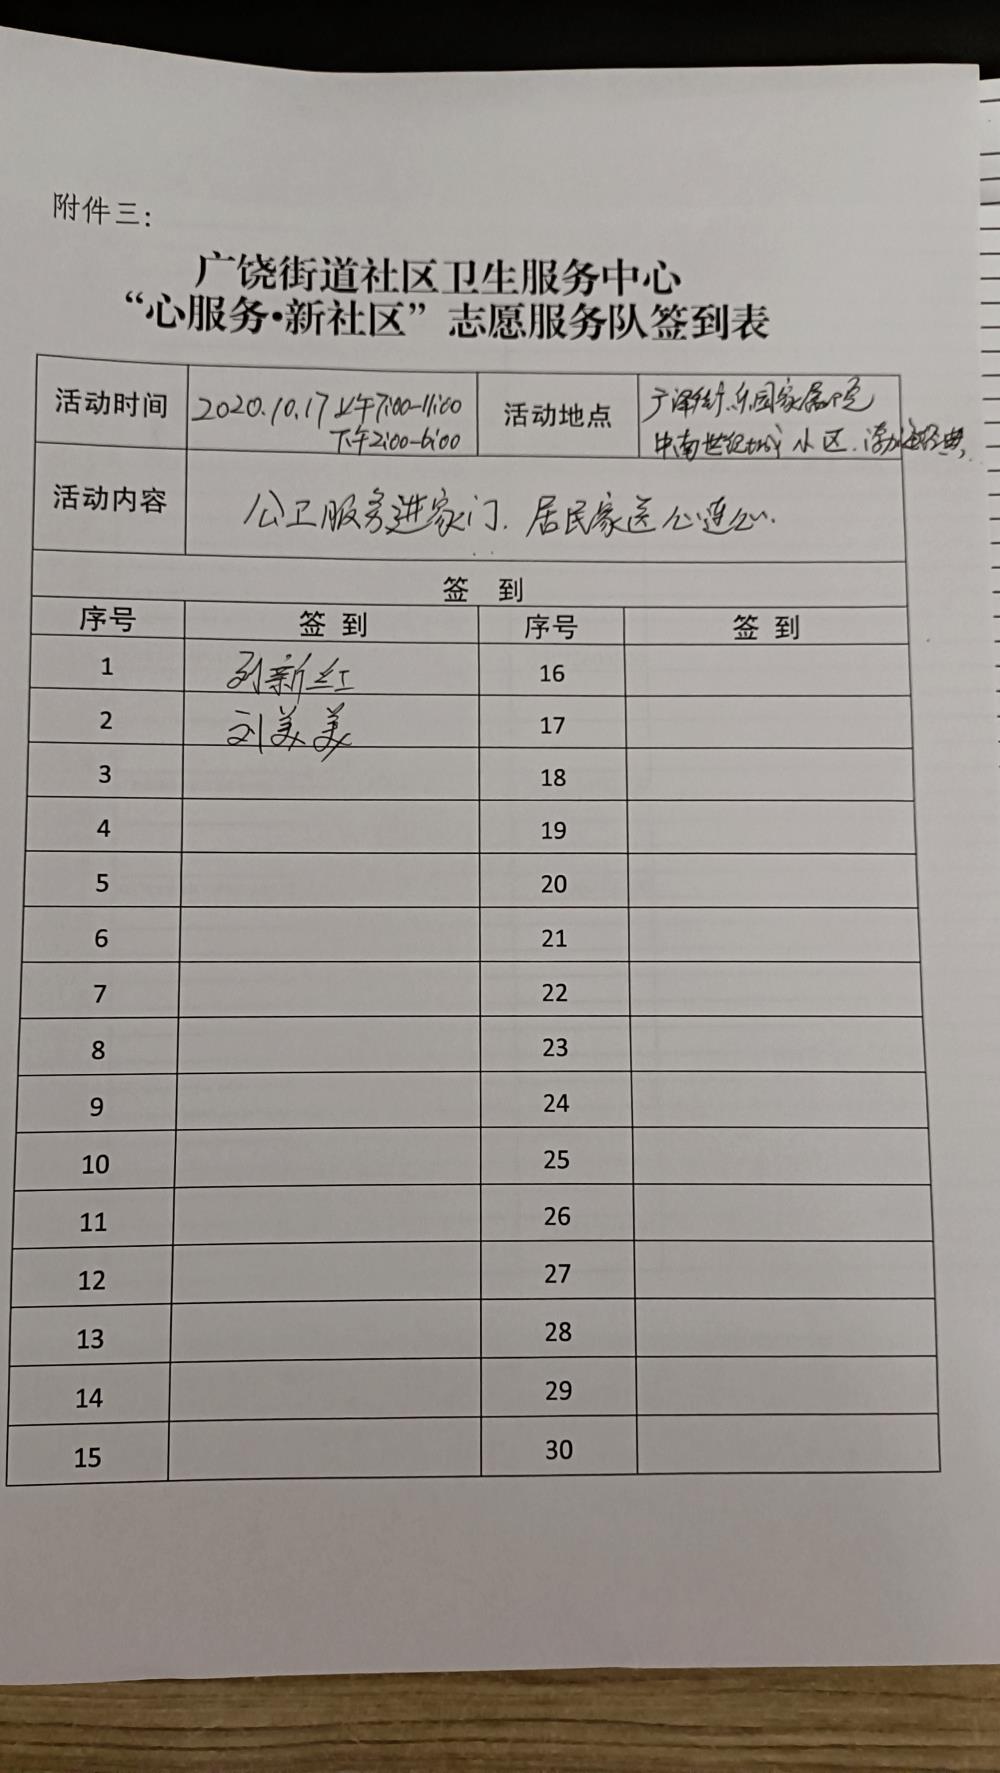 附件三:
广饶街道社区卫生服务中心
“心服务•新社区”志愿服务队签到表
活动时间 2020.10.17 上午7:00-11:00 活动地点 乐园家属院
下午2:00-6:00 中南世纪城小区.渤海经典,
活动内容 公卫服务进家门.居民家医心连心.
签 到
序号 签 到 序号 签 到
1 刘新红 16
2 刘美美 17
3 18
4 19
5 20
6 21
7 22
8 23
9 24
10 25
11 26
12 27
13 28
14 29
15 30